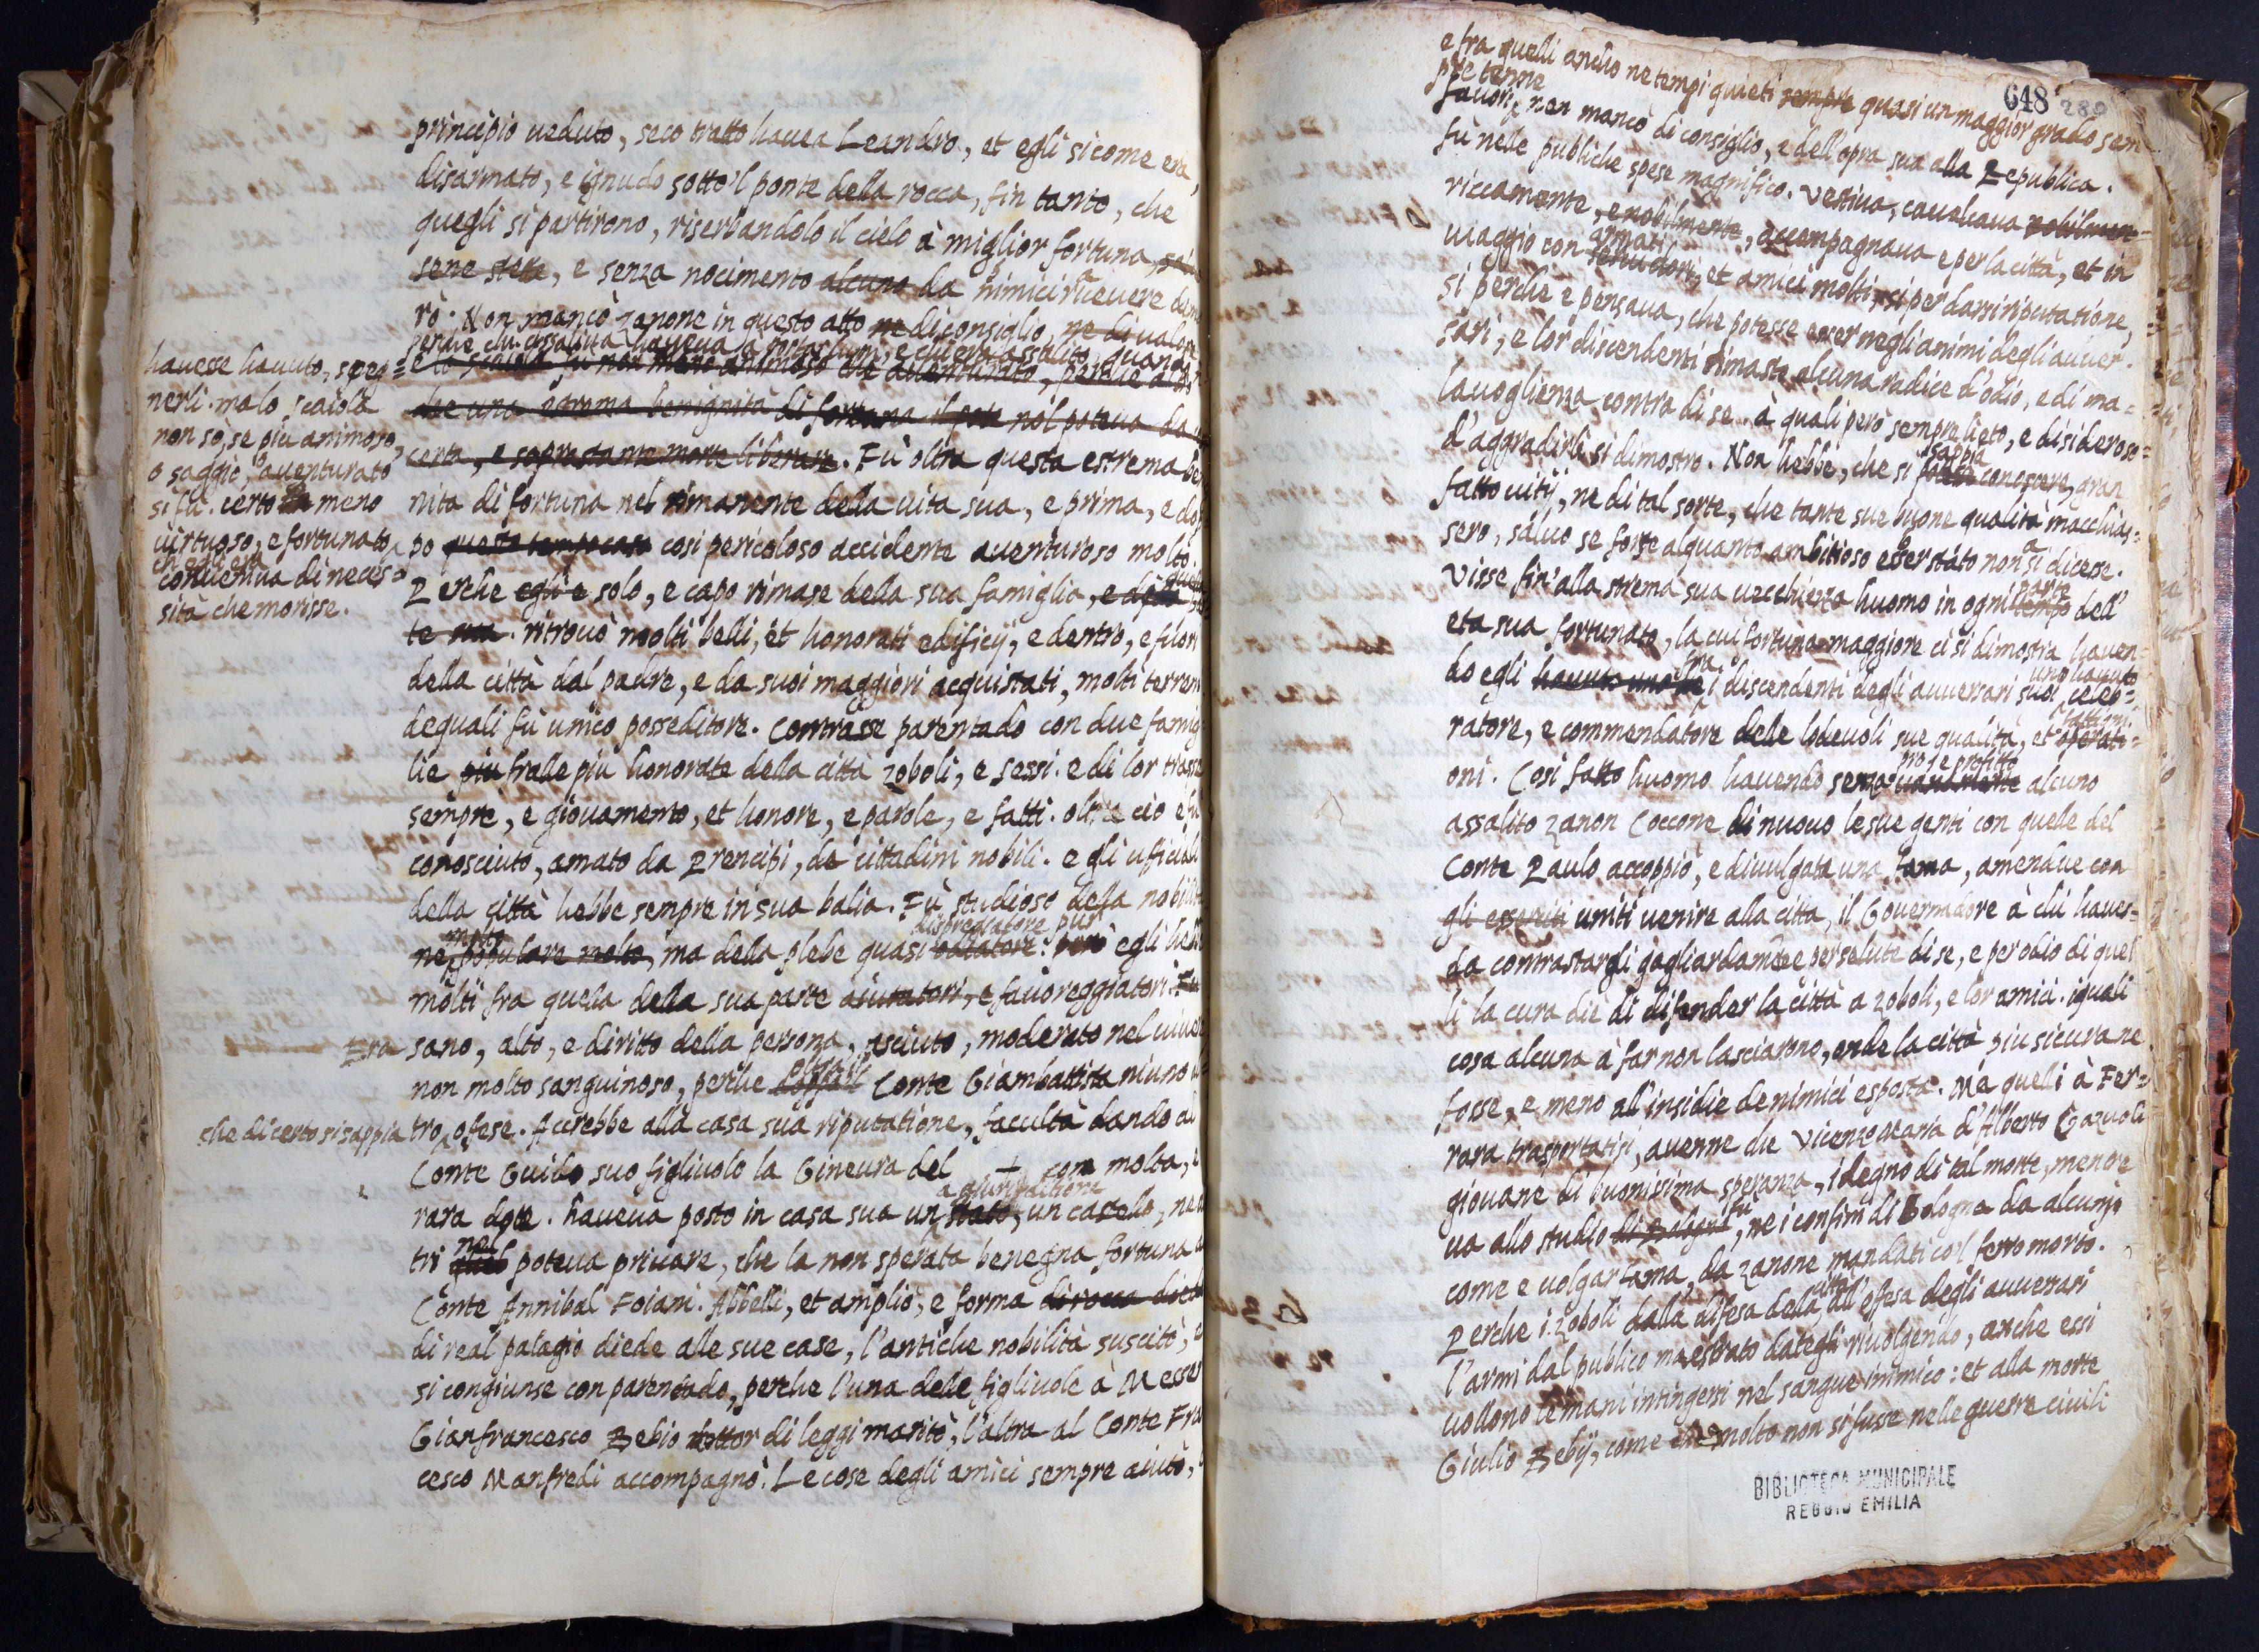 principio ueduto, seco tratto hauea Leandro, et egli sicome era,
disarmato, e ignudo sotto'l ponte della rocca, fin tanto, che
quegli si partirono, riserbandolo il cielo à miglior fortuna
sene stette, e senza nocimento alcuno da nimici riceuere
rò. Non mancò Zanone in questo atto ne di consiglio, ne di ualore
perche chi assaliua haueua
non meno animoso che auenturato, perche
che una benignità di fortuna nol poteua da
certa, e soprastante morte liberare. Fù oltra questa estrema be
nità di fortuna nel rimanente della uita sua, e prima, e do
po questo cosi pericoloso accidente auenturoso molto.
Perche egli e solo, e capo rimase della sua famiglia,
te sua. ritrouò molti belli, et honorati edificij, e dentro, e fuori
della città dal padre, e da suoi maggiori acquistati, molti terreni
dequali fù unico posseditore. Contrasse parentado con due famig
lie piu fralle piu honorate della città Zoboli, e Sessi. e di lor trasse
sempre, e giouamento, et honore, e parole, e fatti. oltre ciò e fu
conosciuto, amato da Prencipi, da cittadini nobili. e gli ufficiali
della città hebbe sempre in sua balia. Fù studioso della nobilt
molto dispregiatore pur
ne popolare molto, ma della plebe quasi però egli heb
molti fra quella della sua parte aiutatori, e fauoreggiatori. Fu
Era sano, alto, e diritto della persona, asciuto, moderato nel uiuer
non molto sanguinoso, perche Conte Giambattista niuno
che di certo si sappia tro, ofese. Accrebbe alla casa sua riputatione, facultà dando al
Conte Guido suo figliuolo la Gineura del + con molta, e
a giurisditione
rara dote. haueua posto in casa sua un stato, un castello, ne
nol
tri poteua priuare, che la non sperata benegna fortuna
Conte Annibal Foiani. Abbellì, et ampliò, e forma di rocca
di real palagio diede alle sue case, l'antiche nobilità suscitò,
si congiunse con parentado, perche l'una delle figliuole à Messer
Gianfrancesco Bebio dottor di leggi maritò, l'altra al Conte Fra
cesco Manfredi accompagnò. Le cose degli amici sempre aiutò,
hauesse hauuto, speg=
nerli. ma lo Scaiola
non sò, se piu animoso,
o saggio, o auenturato
si fù. certo meno
uirtuoso, e fortunato
ch'egli era
conueniua di neces=
sità che morisse.
648 280
e fra quelli ancho ne tempi quieti sempre quasi un maggior grado sem
pre tenne
fauori, non mancò di consiglio, e dell'opra sua alla Republica.
fù nelle publiche spese magnifico. Vestiua, caualcaua nobilmen
riccamente, e nobilmente, accompagnaua e per la città, et in
armati
uiaggio con seruidori, et amici molti, si per darsi riputatione,
si perche e pensaua, che potesse esser negli animi degli auuer.
sari, e lor discendenti rimasta alcuna radice d'odio, e di ma=
lauoglienza contra di se. à quali però sempre lieto, e disideroso
d'aggradirli si dimostrò. Non hebbe, che si sappia potesse conoscere, gran
fatto uitij, ne di tal sorte, che tante sue buone qualità macchias=
sero, saluo se forse alquanto ambitioso esser stato non si dicesse.
Visse fin'alla strema sua uecchiezza huomo in ogni parte tempo dell'
eta sua fortunato, la cui fortuna maggiore ci si dimostra hauen
fra uno hauuto
do egli hauuto uno i discendenti degli auuersari suoi celeb=
fattioni.
ratore, e commendatore delle lodeuoli sue qualità, et operati=
pro, e profitto
oni. Cosi fatto huomo hauendo senza alcuno
assalito Zanon Coccone di nuouo le sue genti con quelle del
Conte Paulo accoppiò, e diuulgata una fama, amendue con
gli esserciti uniti uenire alla città, il Gouernadore à chi hauer=
da contrastargli gagliardamente per salute di se, e per odio di quel
li la cura diè di difender la città a Zoboli, e lor amici. iquali
cosa alcuna à far non lasciarono, onde la città piu sicura ne
fosse, e meno all'insidie de nimici esposta. Ma quelli à Fer=
rara trasportatisi, auenne che Vicenzo Maria d'Alberto Gazuoli
giouane di buonissima speranza, indegno di tal morte, mentre
fu
ua allo studio di Bologna, ne i confini di Bologna da alcuni
come e uolgar fama, da Zanone mandati col ferro morto.
città
Perche i Zoboli dalla difesa della all'ofesa degli auuersari
l'armi dal publico maestrato dategli riuolgendo, anche essi
uollono le mani intingersi nel sangue inimico: et alla morte
Giulio Bebij, come che molto non si fusse nelle guerre ciuili
BIBLIOTECA MUNICIPALE
REGGIO EMILIA